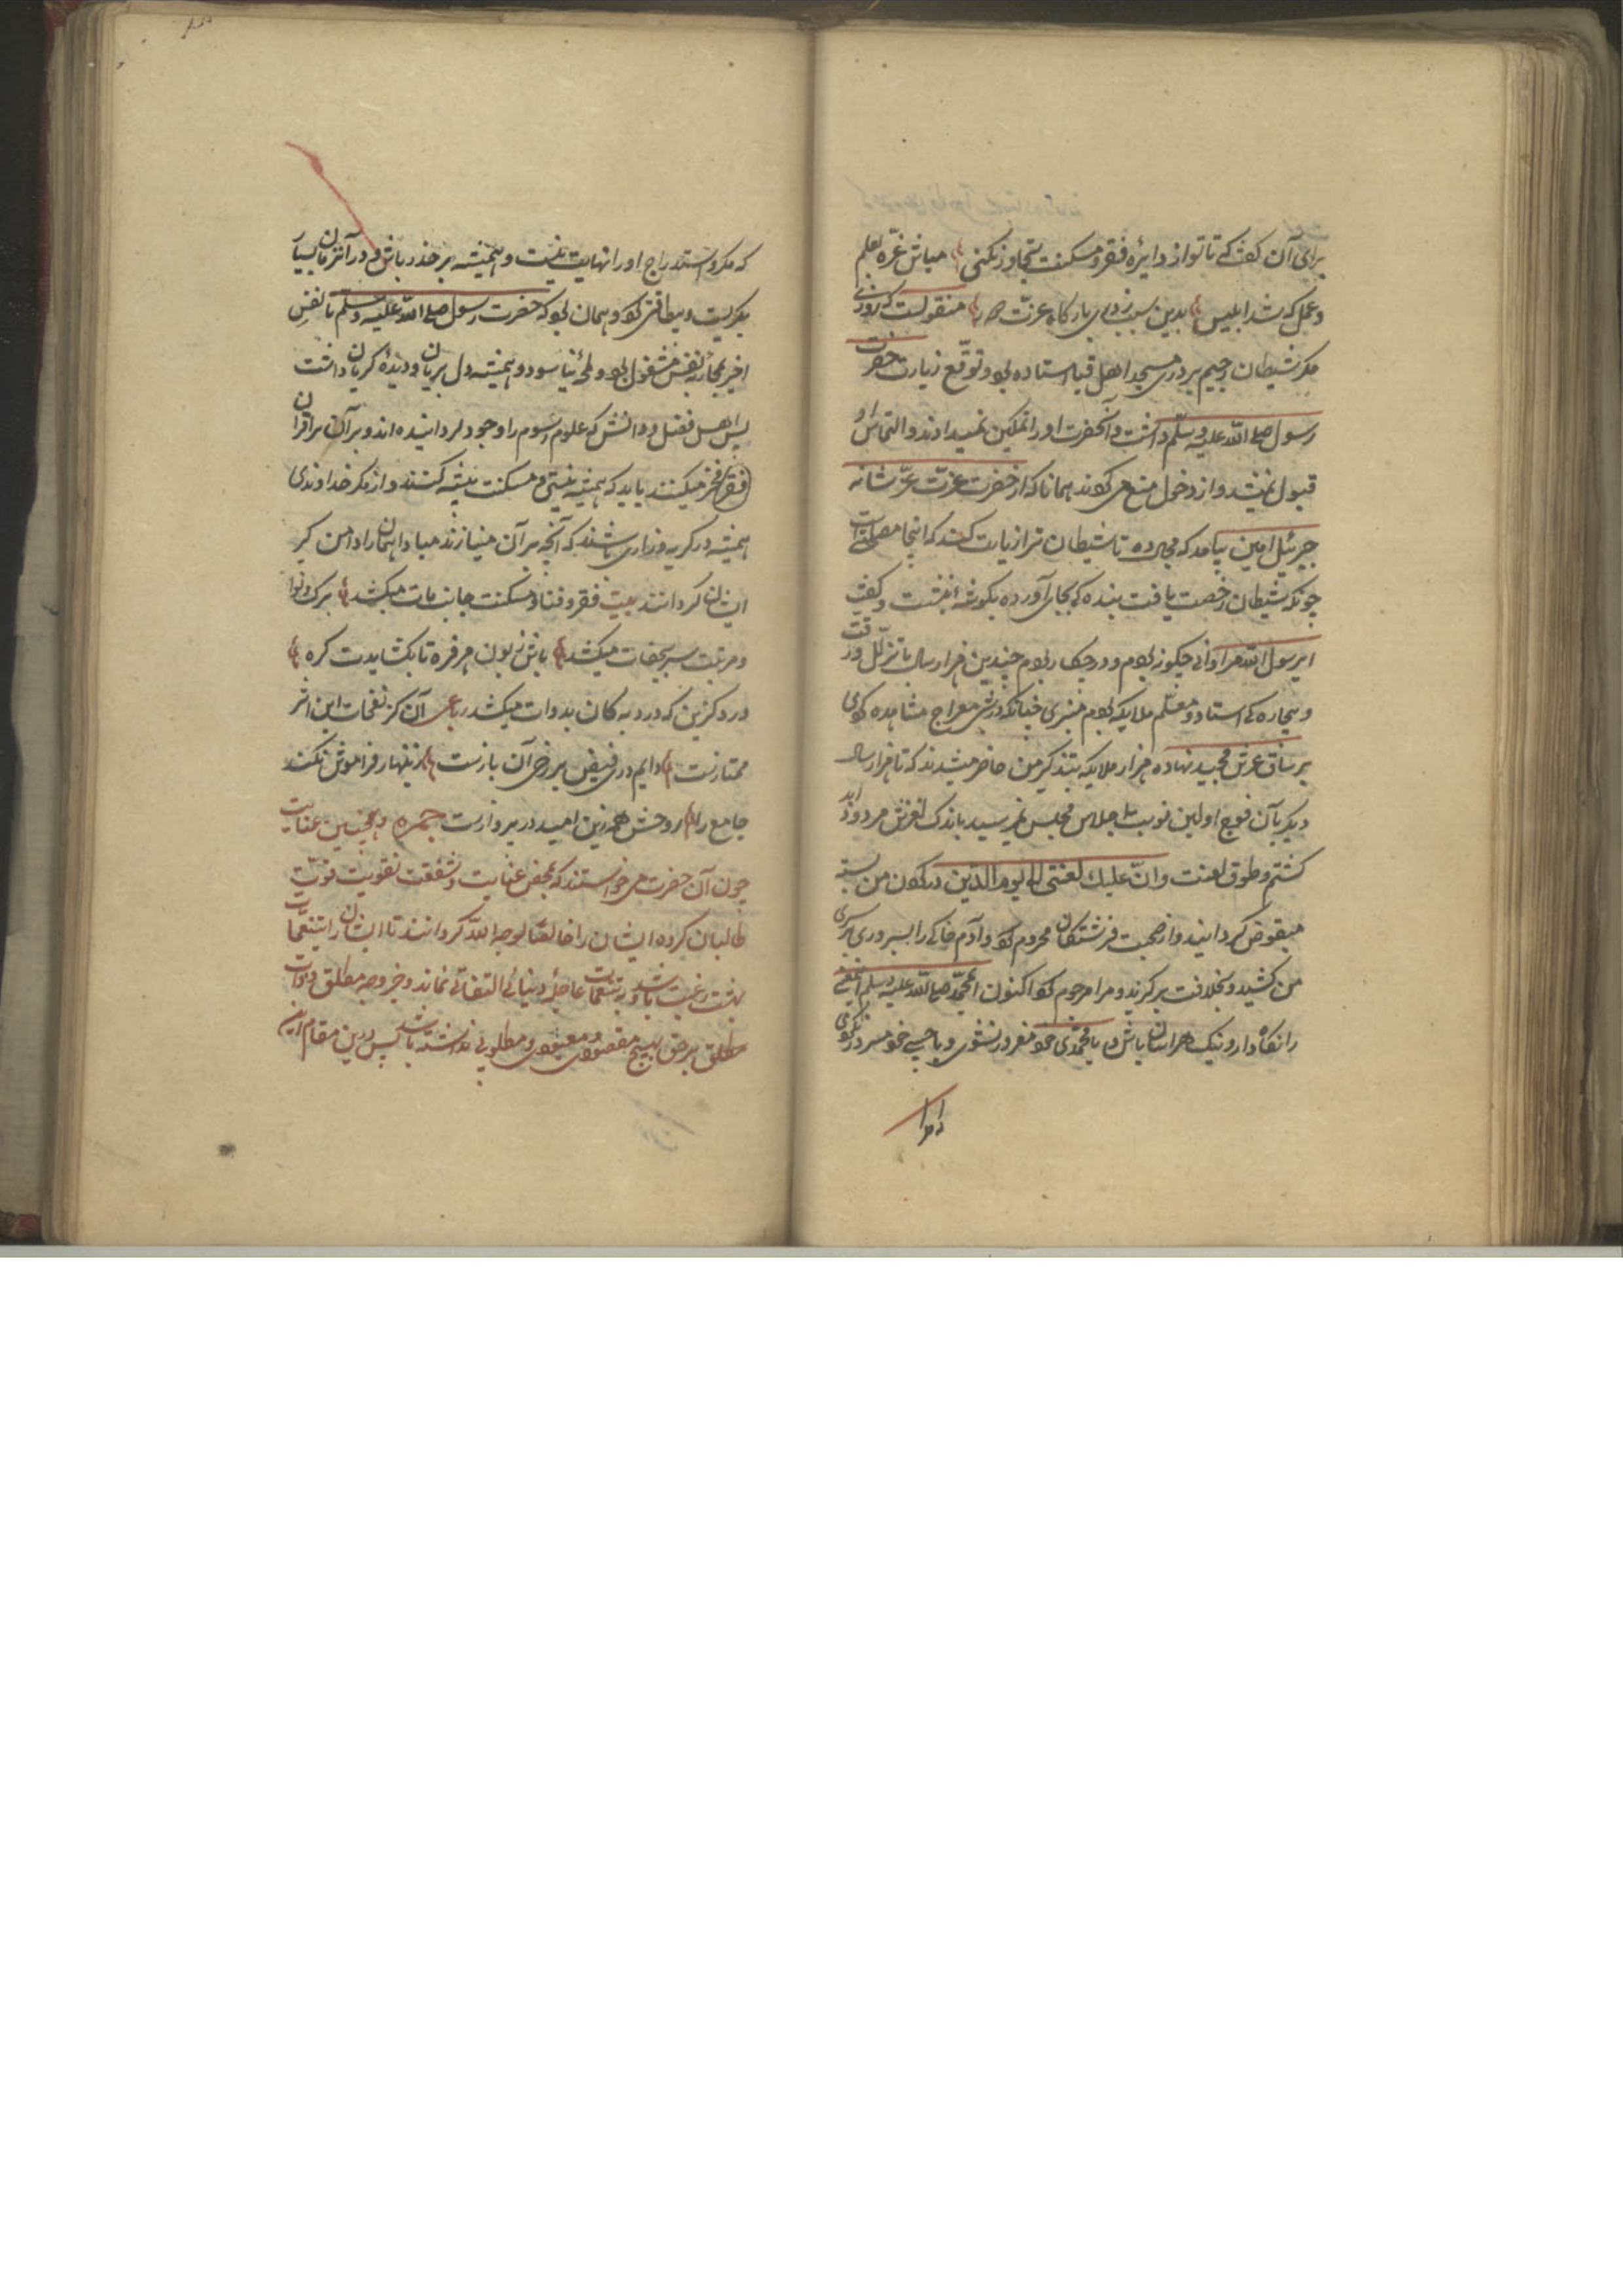 برای آن گفت که تا تو از دایره فقر و مسکنت تجاوز نکنی مباش غره بعلم
و عمل که شد ابلیس بدین سبب ز در بارگاه عزت منقولست که روزی
مکر شیطان رجیم بر در مسجد اهل قبا استاده بود و توقع زیارت حضرت
رسول صلی الله علیه و سلم داشت و آنحضرت او را تمکین نمیدادند و التماس او
قبول نمیشد و از دخول منع می کردند همانا که از حضرت عزت عز شانه
جبرئیل امین بیامد که تا شیطان ترا زیارت کند که اینجا مصلحت است
چونکه شیطان رخصت یافت بنده کی بجای آورده بگوشه بنشست و گفت
ای رسول الله مرا دانی چگونه بودم و در چه کار بودم چندین هزار سال با تذلل و رقت
و بیچاره کی استاد و معلم ملایکه بودم منبری چنانکه در شب معراج مشاهده کردی
بر ساق عرش مجید نهاده هزار ملایکه بتذکیر من حاضر میشدند که تا هزار سال
دیگر بآن فوج اولین نوبت اجلاس مجلس نمیرسید باندک لغزش مردود ابد
گشتم و طوق لعنت و ان علیک لعنتی الی یوم الدین در گردن من بسته
منقوض گردانیدند و از صحبت فرشتگان محروم کرد و آدم خاکی را بسروری بر سر
من کشید و بخلافت برگزید و مرا مرجوم کرد اکنون ای محمد صلی الله علیه و سلم
را نگاه دار و نیک هراسان باش و با محمدی خود مغرور نشوی و با حبیبی خود مسرور نگردی
که مکر و استدراج او را نهایت نیست و همیشه بر حذر باش و در آن زمان بسیار
بگریست و بیطاقتی کرد و همان بود که حضرت رسول صلی الله علیه و سلم تا نفس
اخیر بمحاربه نفس مشغول بود و لمحه نیاسود و همیشه دل بریان و دیده گریان داشت
پس اهل فضل و دانش که علوم رسوم را وجود گردانیده اند و بر آن بر اقران
فقر فخر میکنند باید که همیشه نیستی و مسکنت پیشه کنند و از مکر خداوندی
همیشه در گریه و زاری باشند که آنچه بر آن مینازند مبادا همان را دامن گیر
ایشان گردانند بیت فقر و فنا و مسکنت جانب مات میکشد برگ و نوا
و مرتبت سر بجفات میکشد باش زبون هر فره تا بگشایدت گره
درد گزین که درد به کان بدوات میکشد رباعی آن کز نفحات این اثر
ممتازست دایم در فیض بر رخ آن بازست زنهار فراموش نکند
جامع را روحش همه زین امید در پروازست جمره و همچنین عنایت
چون آن حضرت می خواستند که بمحض عنایت و شفقت تقویت قوت
طالبان کرده ایشان را خالصا لوجه الله گردانند تا ایشان را بتنعمات
بهشت رغبت باشد و به تنعمات عاجله دنیائی التفاتی نماند و جز وجه مطلق و ذات
مطلق برحق هیچ مقصودی و معبودی و مطلوبی نداشته باشند پس درین مقام